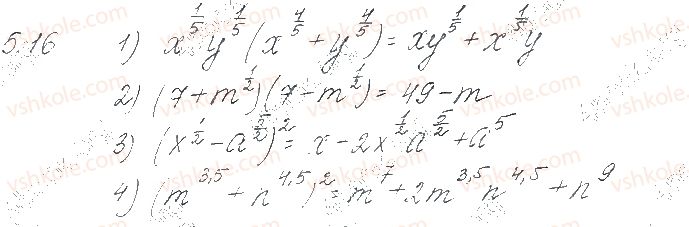 5.16 1) x^{1/5}y^{1/5}(x^{4/5}+y^{4/5})=xy^{1/5}+x^{1/5}y
2) (7+m^{1/2})(7-m^{1/2})=49-m
3) (x^{1/2}-a^{5/2})^2=x-2x^{1/2}a^{5/2}+a^5
4) (m^{3,5}+n^{4,5})^2=m^7+2m^{3,5}n^{4,5}+n^9
vshkole.com